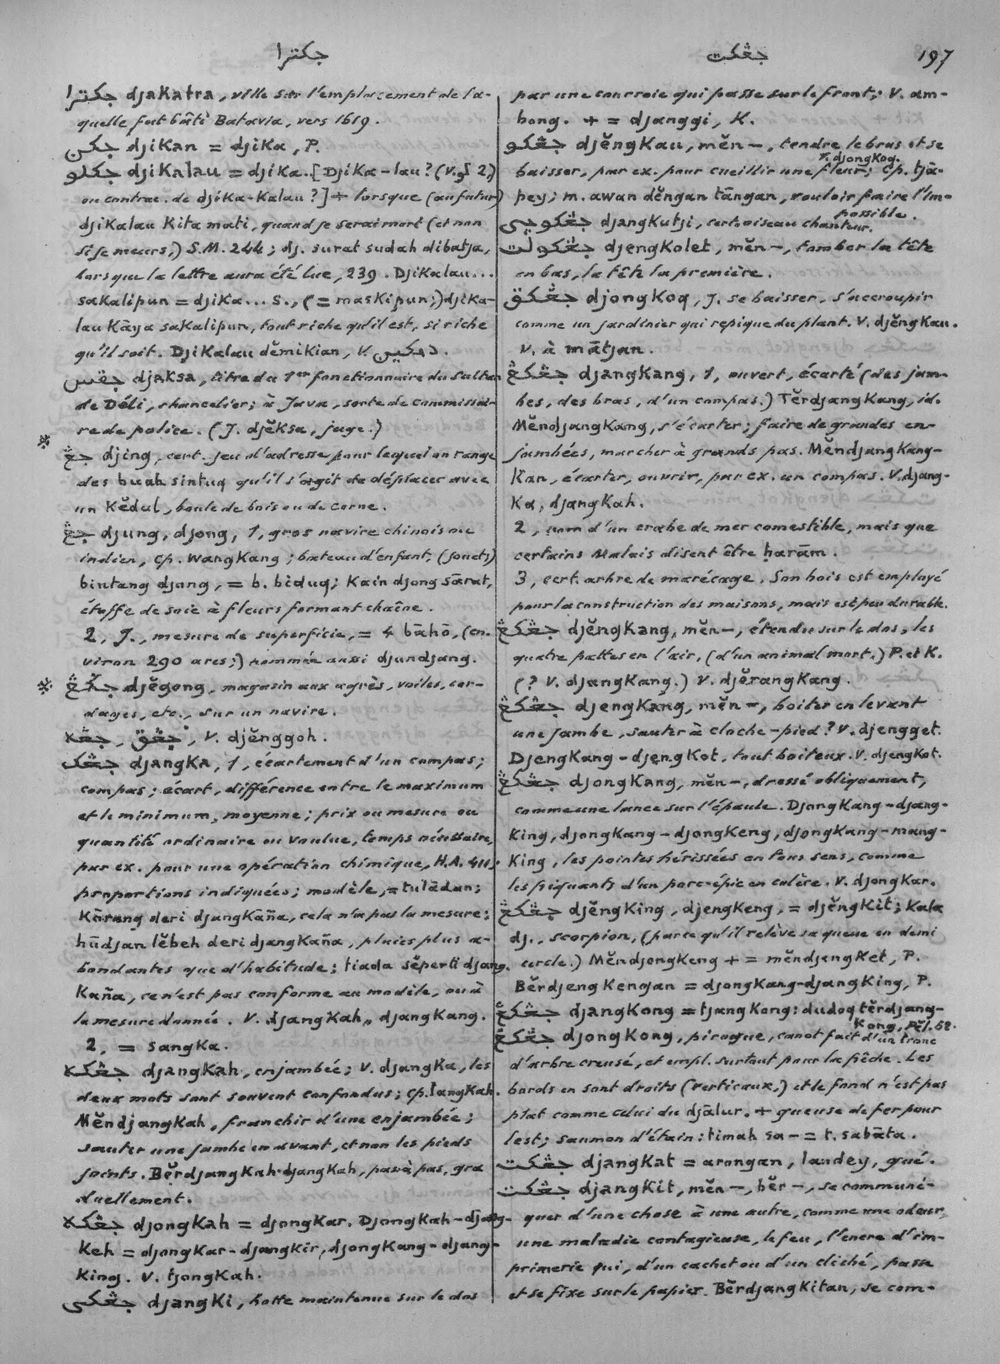 جكترا
جڠكت
197
جكترا djakatra, ville sur l'emplacement de la-
quelle fut bâti Batavia, vers 1619.
جيكن djikan = djika, P.
جيكلو djikalau = djika. [Djika-lau? (V. § 2,)
ou contrac. de djika-kalau?] + lorsque (au futur)
djikalau kita mati, quand je serai mort (et non
si je meurs,) S.M. 244; dj. surat sudah dibatja,
lorsque la lettre aura été lue, 239. Djikalau...
sakalipun = djika... s., (= maskipun;) djika-
lau kāya sakalipun, tout riche qu'il est, si riche
qu'il soit. Djikalau dĕmikian, V. دمكين.
جقس djaksa, titre du 1er fonctionnaire du Sultan
de Déli, chancelier; à Java, sorte de commissai-
re de police. (J. djĕksa, juge.)
* جڠ djing, cert. jeu d'adresse pour lequel on range
des buah sintuq qu'il s'agit de déplacer avec
un kĕdul, boule de bois ou de corne.
جڠ djung, djong, 1, gros navire chinois ou
indien, cp. wangkang; bateau d'enfant, (jouet;)
bintang djong, = b. bĭduq; kain djong sārat,
étoffe de soie à fleurs formant chaîne.
2, J., mesure de superficie, = 4 bāhō, (en-
viron 290 ares;) nommée aussi djundjang.
* جڬڠ djĕgong, magasin aux agrès, voiles, cor-
dages, etc., sur un navire.
جڠڬه, جڠق, V. djĕnggoh.
جڠك djangka, 1, écartement d'un compas;
compas; écart, différence entre le maximum
et le minimum, moyenne; prix ou mesure ou
quantité ordinaire ou voulue, temps nécessaire,
par ex. pour une opération chimique, H.A. 411;
proportions indiquées; modèle, = tulādan;
kūrang deri djangkaña, cela n'a pas la mesure;
hūdjan lĕbeh deri djangkaña, pluies plus a-
bondantes que d'habitude; tiada sĕperti djang-
kaña, ce n'est pas conforme au modèle, ou à
la mesure donnée. V. djangkah, djangkang.
2, = sangka.
جڠكه djangkah, enjambée; V. djangka, les
deux mots sont souvent confondus; cp. langkah.
Mĕndjangkah, franchir d'une enjambée;
sauter une jambe en avant, et non les pieds
joints. Bĕrdjangkah-djangkah, pas à pas, gra-
duellement.
جڠكه djongkah = djongkar. Djongkah-djang-
keh = djongkar-djangkir, djongkang-djang-
king. V. tjongkah.
جڠكي djangki, hotte maintenue sur le dos
par une courroie qui passe sur le front; V. am-
bong. + = djanggi, K.
جڠكو djĕngkau, mĕn-, tendre le bras et se
baisser, par ex. pour cueillir une fleur; cp. tjā-
V. djongkoq.
pey; m. awan dĕngan tāngan, vouloir faire l'im-
possible.
جڠكوچي djangkutji, cert. oiseau chanteur.
جڠكولت djengkolet, mĕn-, tomber la tête
en bas, la tête la première.
جڠكق djongkoq, J. se baisser, s'accroupir
comme un jardinier qui repique du plant. V. djĕngkau.
V. à mātjan.
جڠكڠ djangkang, 1, ouvert, écarté (des jam-
bes, des bras, d'un compas.) Tĕrdjangkang, id.
Mĕndjangkang, s'écarter; faire de grandes en-
jambées, marcher à grands pas. Mĕndjangkang-
kan, écarter, ouvrir, par ex. un compas. V. djang-
ka, djangkah.
2, nom d'un crabe de mer comestible, mais que
certains Malais disent être ḥarām.
3, cert. arbre de marécage. Son bois est employé
pour la construction des maisons, mais est peu durable.
جڠكڠ djĕngkang, mĕn-, étendu sur le dos, les
quatre pattes en l'air, (d'un animal mort.) P. et K.
(? V. djangkang.) V. djĕrangkang.
جڠكڠ djengkang, mĕn-, boiter en levant
une jambe, sauter à cloche-pied? V. djengget.
Djengkang-djengkot, tout boiteux. V. djengkot.
جڠكڠ djongkang, mĕn-, dressé obliquement,
comme une lance sur l'épaule. Djongkang-djang-
king, djongkang-djongkeng, djongkang-mang-
king, les pointes hérissées en tous sens, comme
les piquants d'un porc-épic en colère. V. djongkar.
جڠكڠ djĕngking, djengkeng, = djĕngkit; kala
dj., scorpion, (parce qu'il relève sa queue en demi
cercle.) Mĕndjongkeng + = mĕndjengket, P.
Bĕrdjengkengan = djongkang-djangking, P.
جڠكڠ djangkong = tjangkong: dudoq tĕrdjang-
kong, Pĕl. 52.
جڠكڠ djongkong, pirogue, canot fait d'un tronc
d'arbre creusé, et empl. surtout pour la pêche. Les
bords en sont droits (verticaux,) et le fond n'est pas
plat comme celui du djālur. + gueuse de fer pour
lest; saumon d'étain: timah sa- = t. sabāta.
جڠكت djangkat = arongan, landey, gué.
جڠكت djangkit, mĕn-, bĕr-, se communi-
quer d'une chose à une autre, comme une odeur,
une maladie contagieuse, le feu, l'encre d'im-
primerie qui, d'un cachet ou d'un cliché, passe
et se fixe sur le papier. Bĕrdjangkitan, se com-